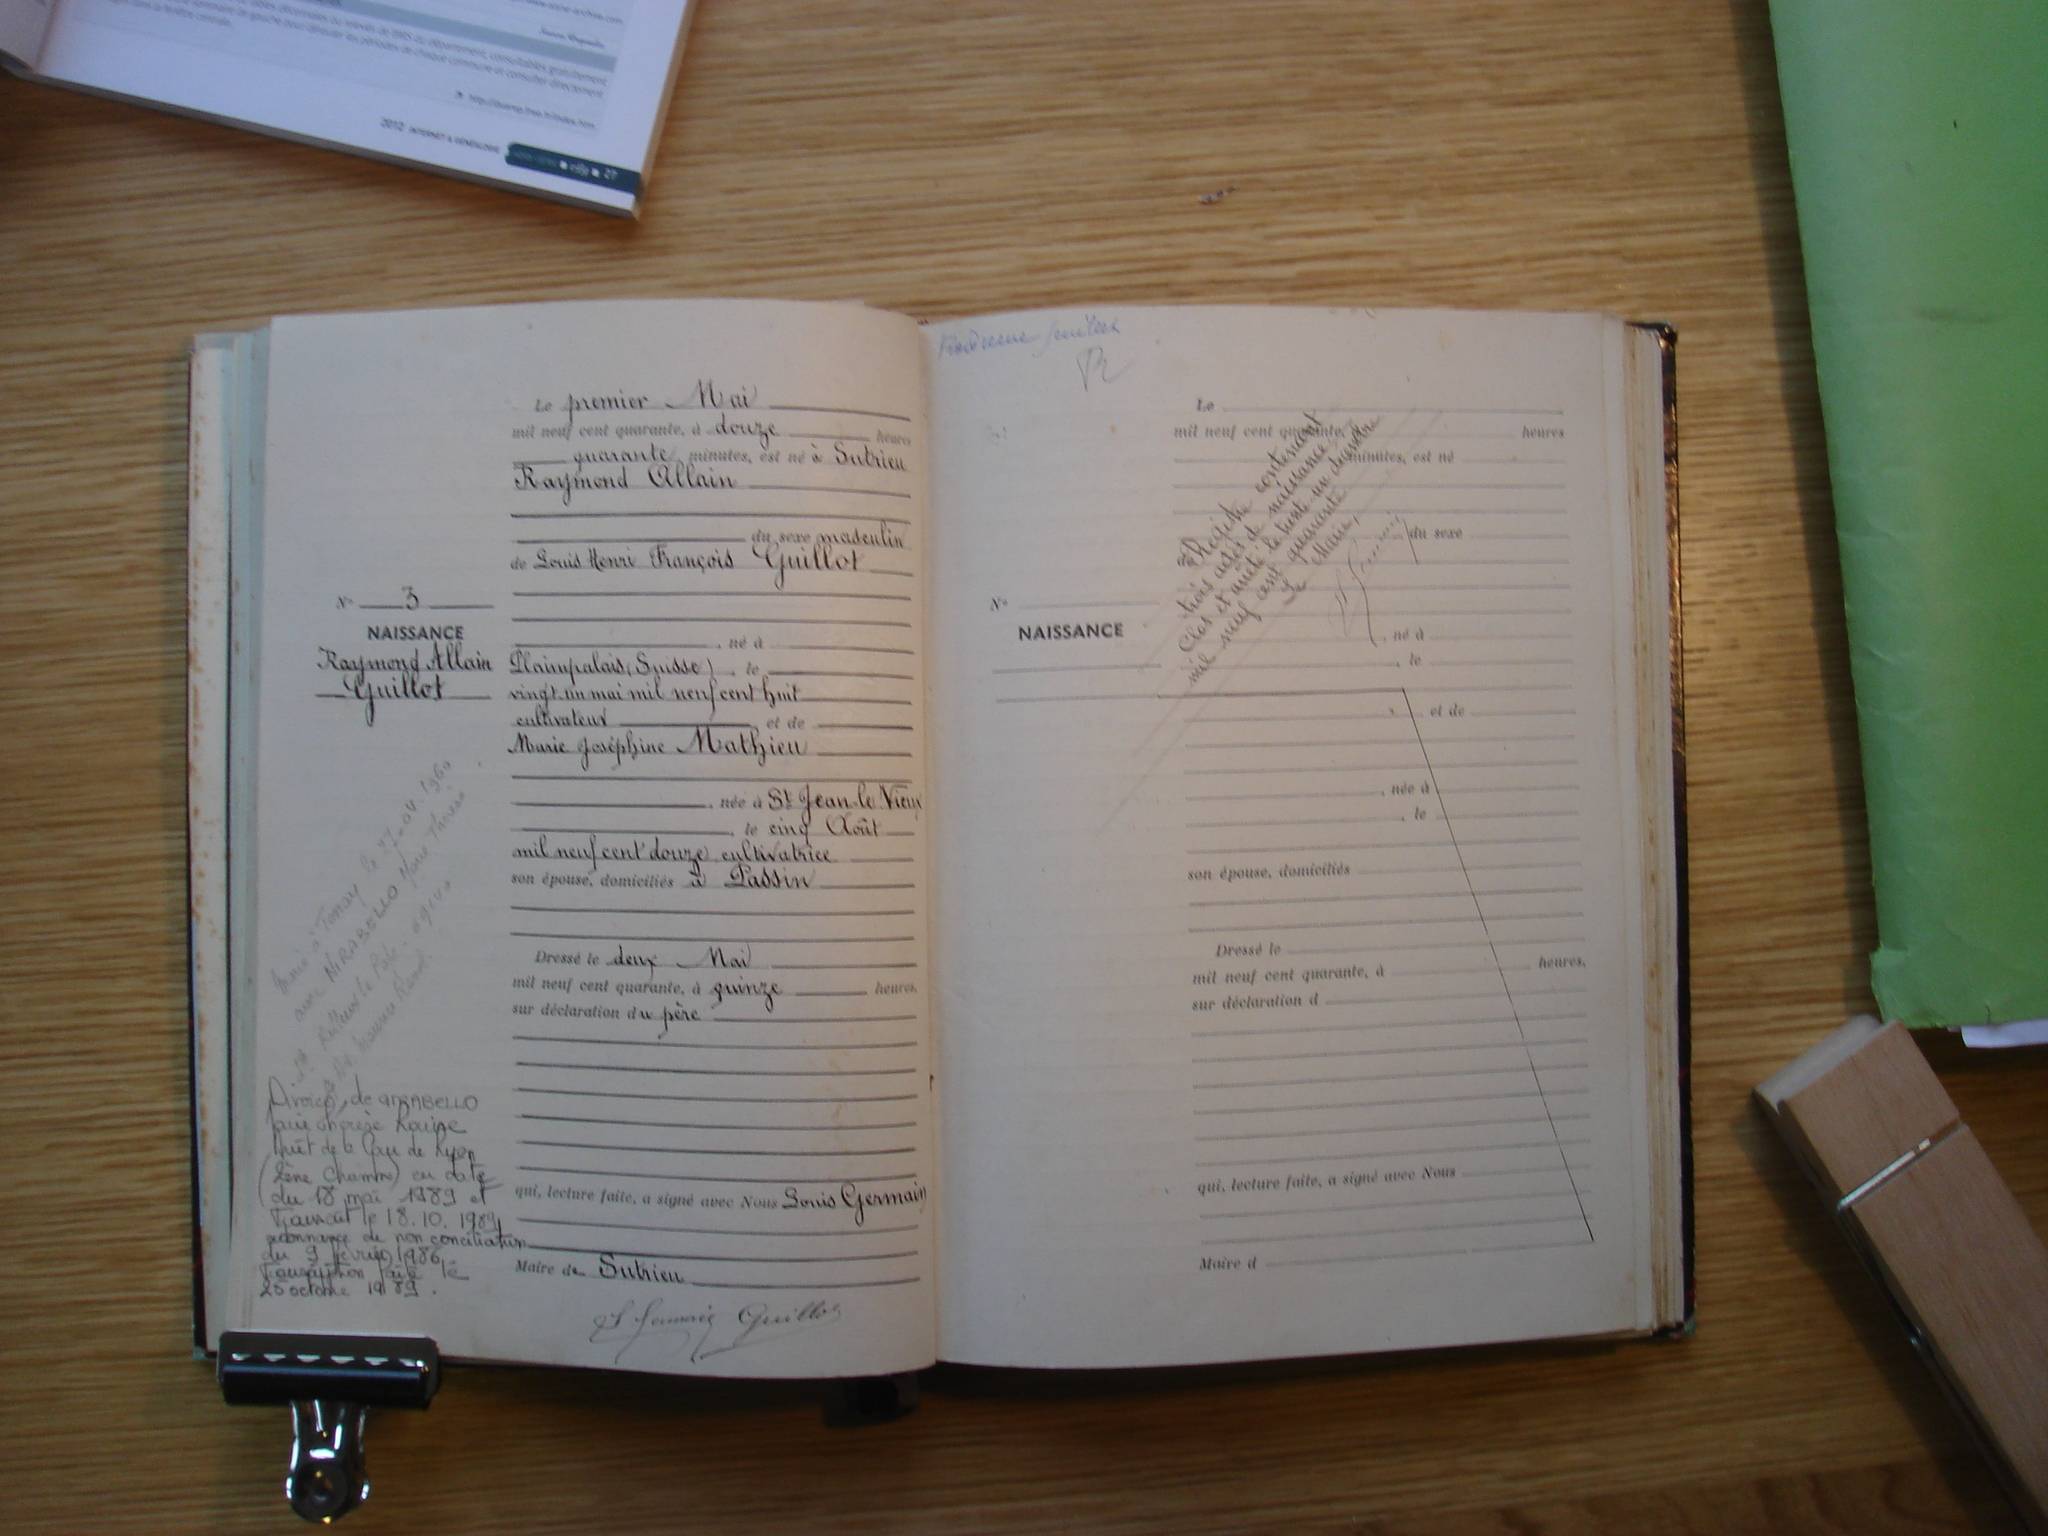 2012 INTERNET & GÉNÉALOGIE
27
Le premier Mai
mil neuf cent quarante, à douze heures
quarante minutes, est né à Sutrieu
Raymond Allain
du sexe masculin
de Louis Henri François Guillot
N° 3
NAISSANCE
Raymond Allain
Guillot
, né à
Plainpalais (Suisse), le
vingt un mai mil neuf cent huit
cultivateur, et de
Marie Joséphine Mathieu
, née à St Jean-le-Vieux
, le cinq Août
mil neuf cent douze, cultivatrice
son épouse, domiciliés à Passin
Dressé le deux Mai
mil neuf cent quarante, à quinze heures,
sur déclaration du père
qui, lecture faite, a signé avec Nous Louis Germain
Maire de Sutrieu
Guillot
1960
avec MIRABELLO Marie Thérèse
de MIRABELLO
de la Cour de Lyon
(2ème Chambre) en date
du 18 mai 1989 et
le 18.10.1989
ordonnance de non conciliation
du 9 février 1986
Transcription faite le
25 octobre 1989.
Le
mil neuf cent quarante, heures
minutes, est né
du sexe
N°
NAISSANCE
, né à
, le
, et de
, née à
, le
son épouse, domiciliés
Dressé le
mil neuf cent quarante, à heures,
sur déclaration d
qui, lecture faite, a signé avec Nous
Maire d
Registre contenant
trois actes de naissance
Clos et arrêté le trente un décembre
mil neuf cent quarante
Le Maire,